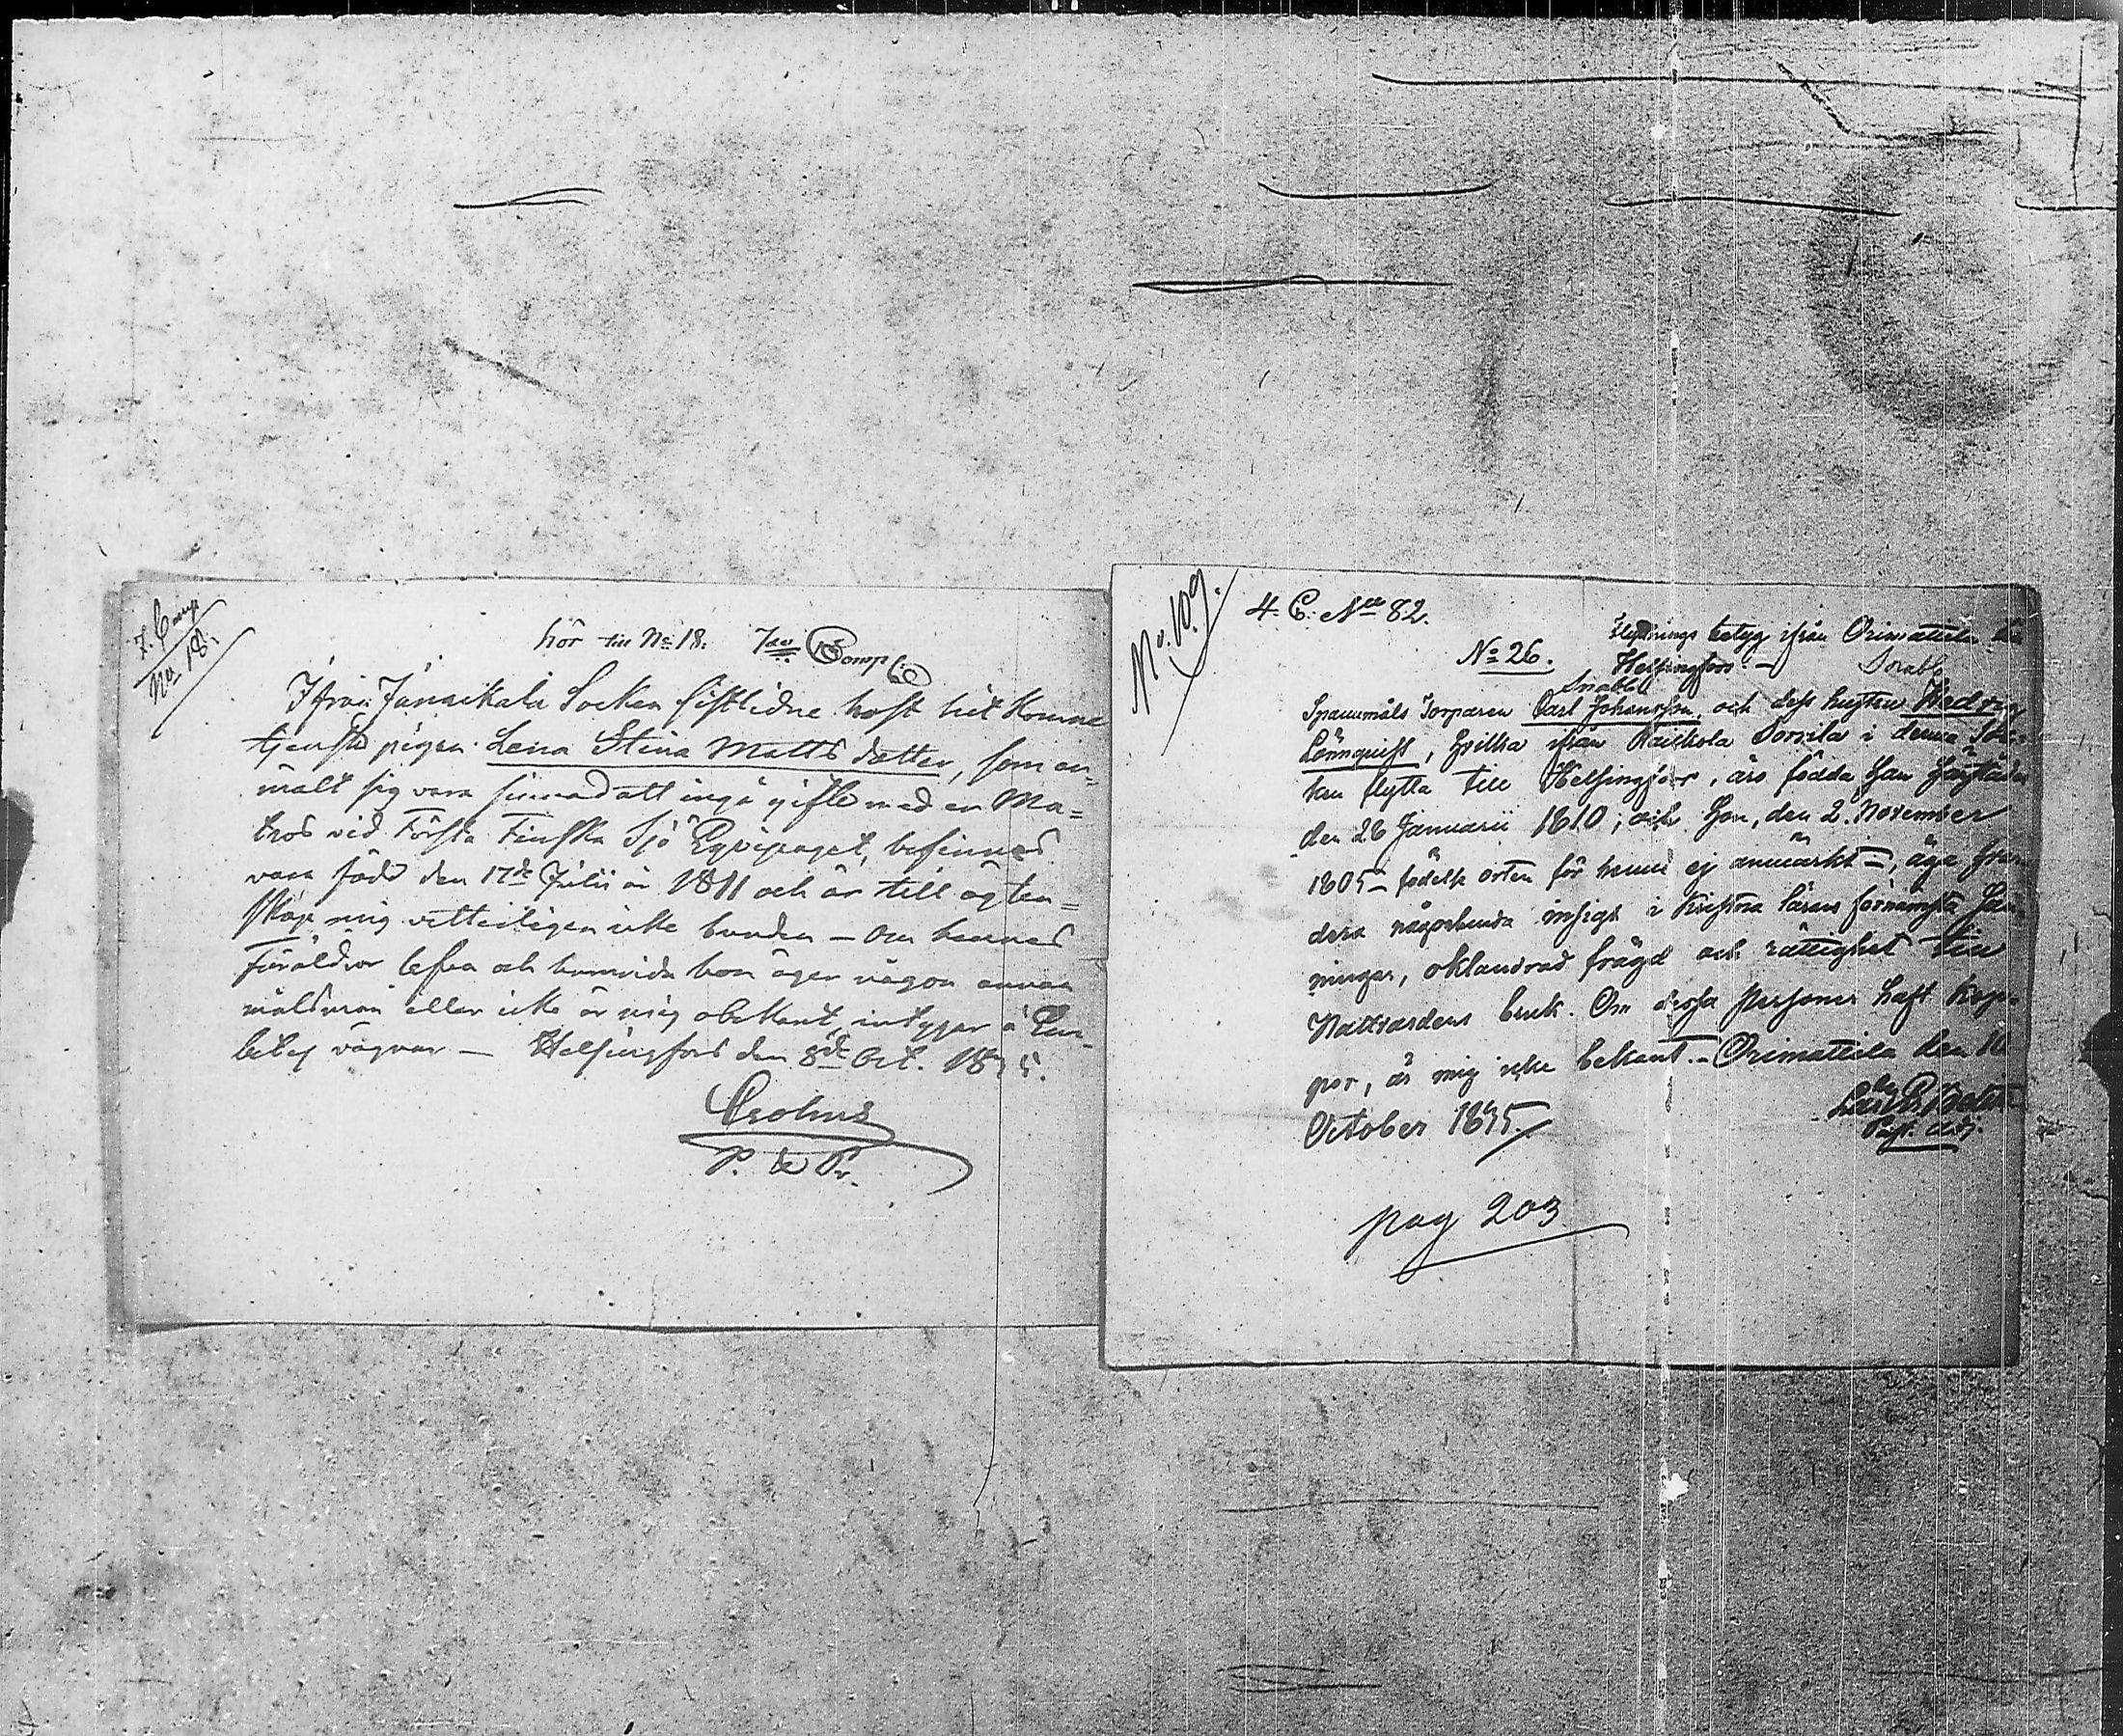 7. Comp
No 18.
hör till No 18. 7de Comp.
Ifrån Janakala Socken sistlidne höst hit komne
tjenste pigan Lena Stina Matts dotter, som an-
mält sig vara sinnad att ingå gifte med en Ma=
tros vid Första Finska Sjö Eqvipaget, befinnes
vara född den 17de Julii år 1811 och är till ägten=
skap mig vetterligen icke bunden – Om hennes
Föräldrar lefva och huruvida hon äger någon annan
målsman eller icke är mig obekant, intygar å
vägnar – Helsingfors den 8de Oct. 18
Crohns
P.
No. 109.
4. C. No 82.
Flyttnings betyg ifrån Orimattila
No 26. Helsingfors. –
Snabb Snabb
Spannmåls Torparen Carl Johansson, och dess hustru Hedvig
Lönnqvist, hvilka ifrån Raikola Sorvila i denna Soc-
ken flytta till Helsingfors, äro födda han härstädes
den 28 Januarii 1810; och hon, den 2. November
1805 – födelse orten för henne ej anmärkt –, äga
dera någorlunda insigt i Kristna lärans förnämsta San-
ningar, oklandrad frägd och rättighet till
Nattvardens bruk. Om dessa Personer haft kop-
por, är mig icke bekant. – Orimattila den
October 1845.
pag 203